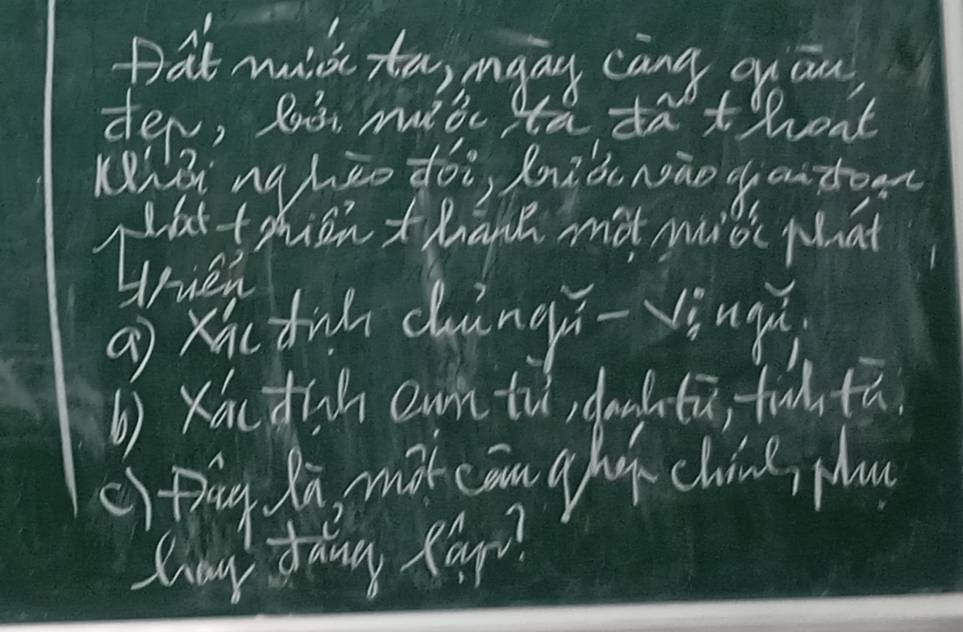 Đất nước ta, ngày càng giàu,
đẹp, bởi nước ta đã thoát
khỏi nghèo đói, bước vào giai đoạn
phát triển thành một nước phát
triển
a) Xác định chủ ngữ - vị ngữ.
b) Xác định cụm từ, danh từ, tính từ.
c) Đây là một câu ghép chính, phụ
hay đẳng lập?